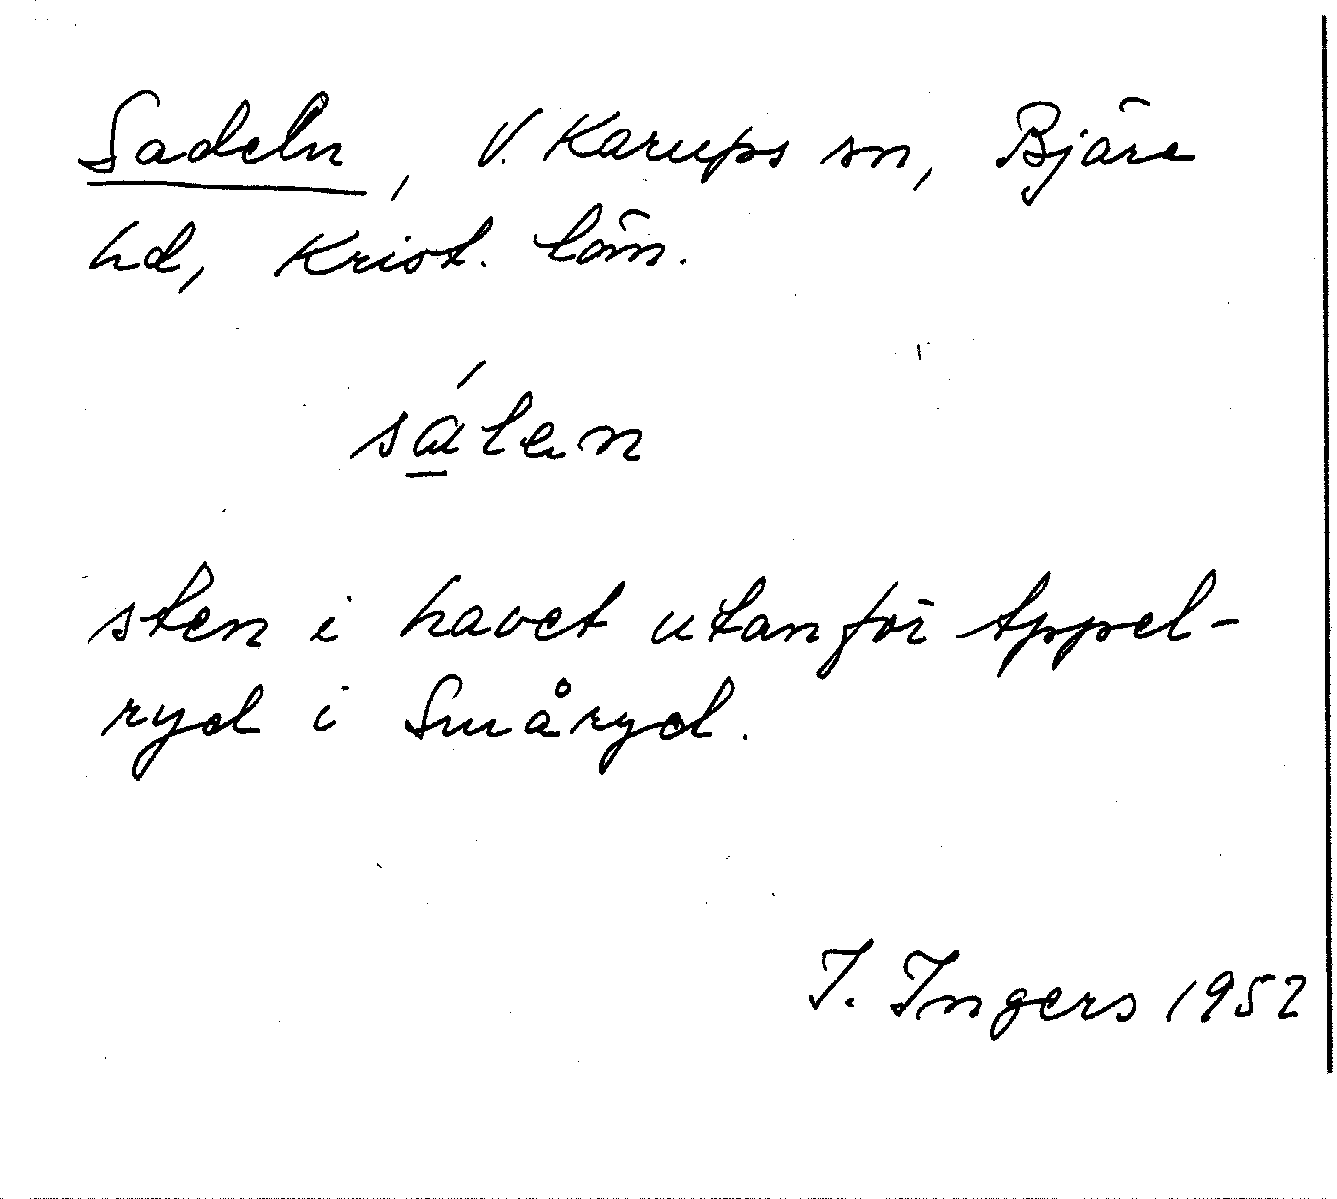 Sadeln, V. Karups sn, Bjäre
hd, Krist. län.
sálen
sten i havet utanför Äppel-
ryd i Småryd.
I. Ingers 1952